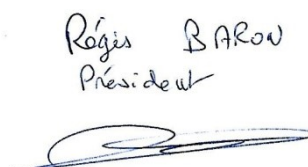 Régis BARON
Président